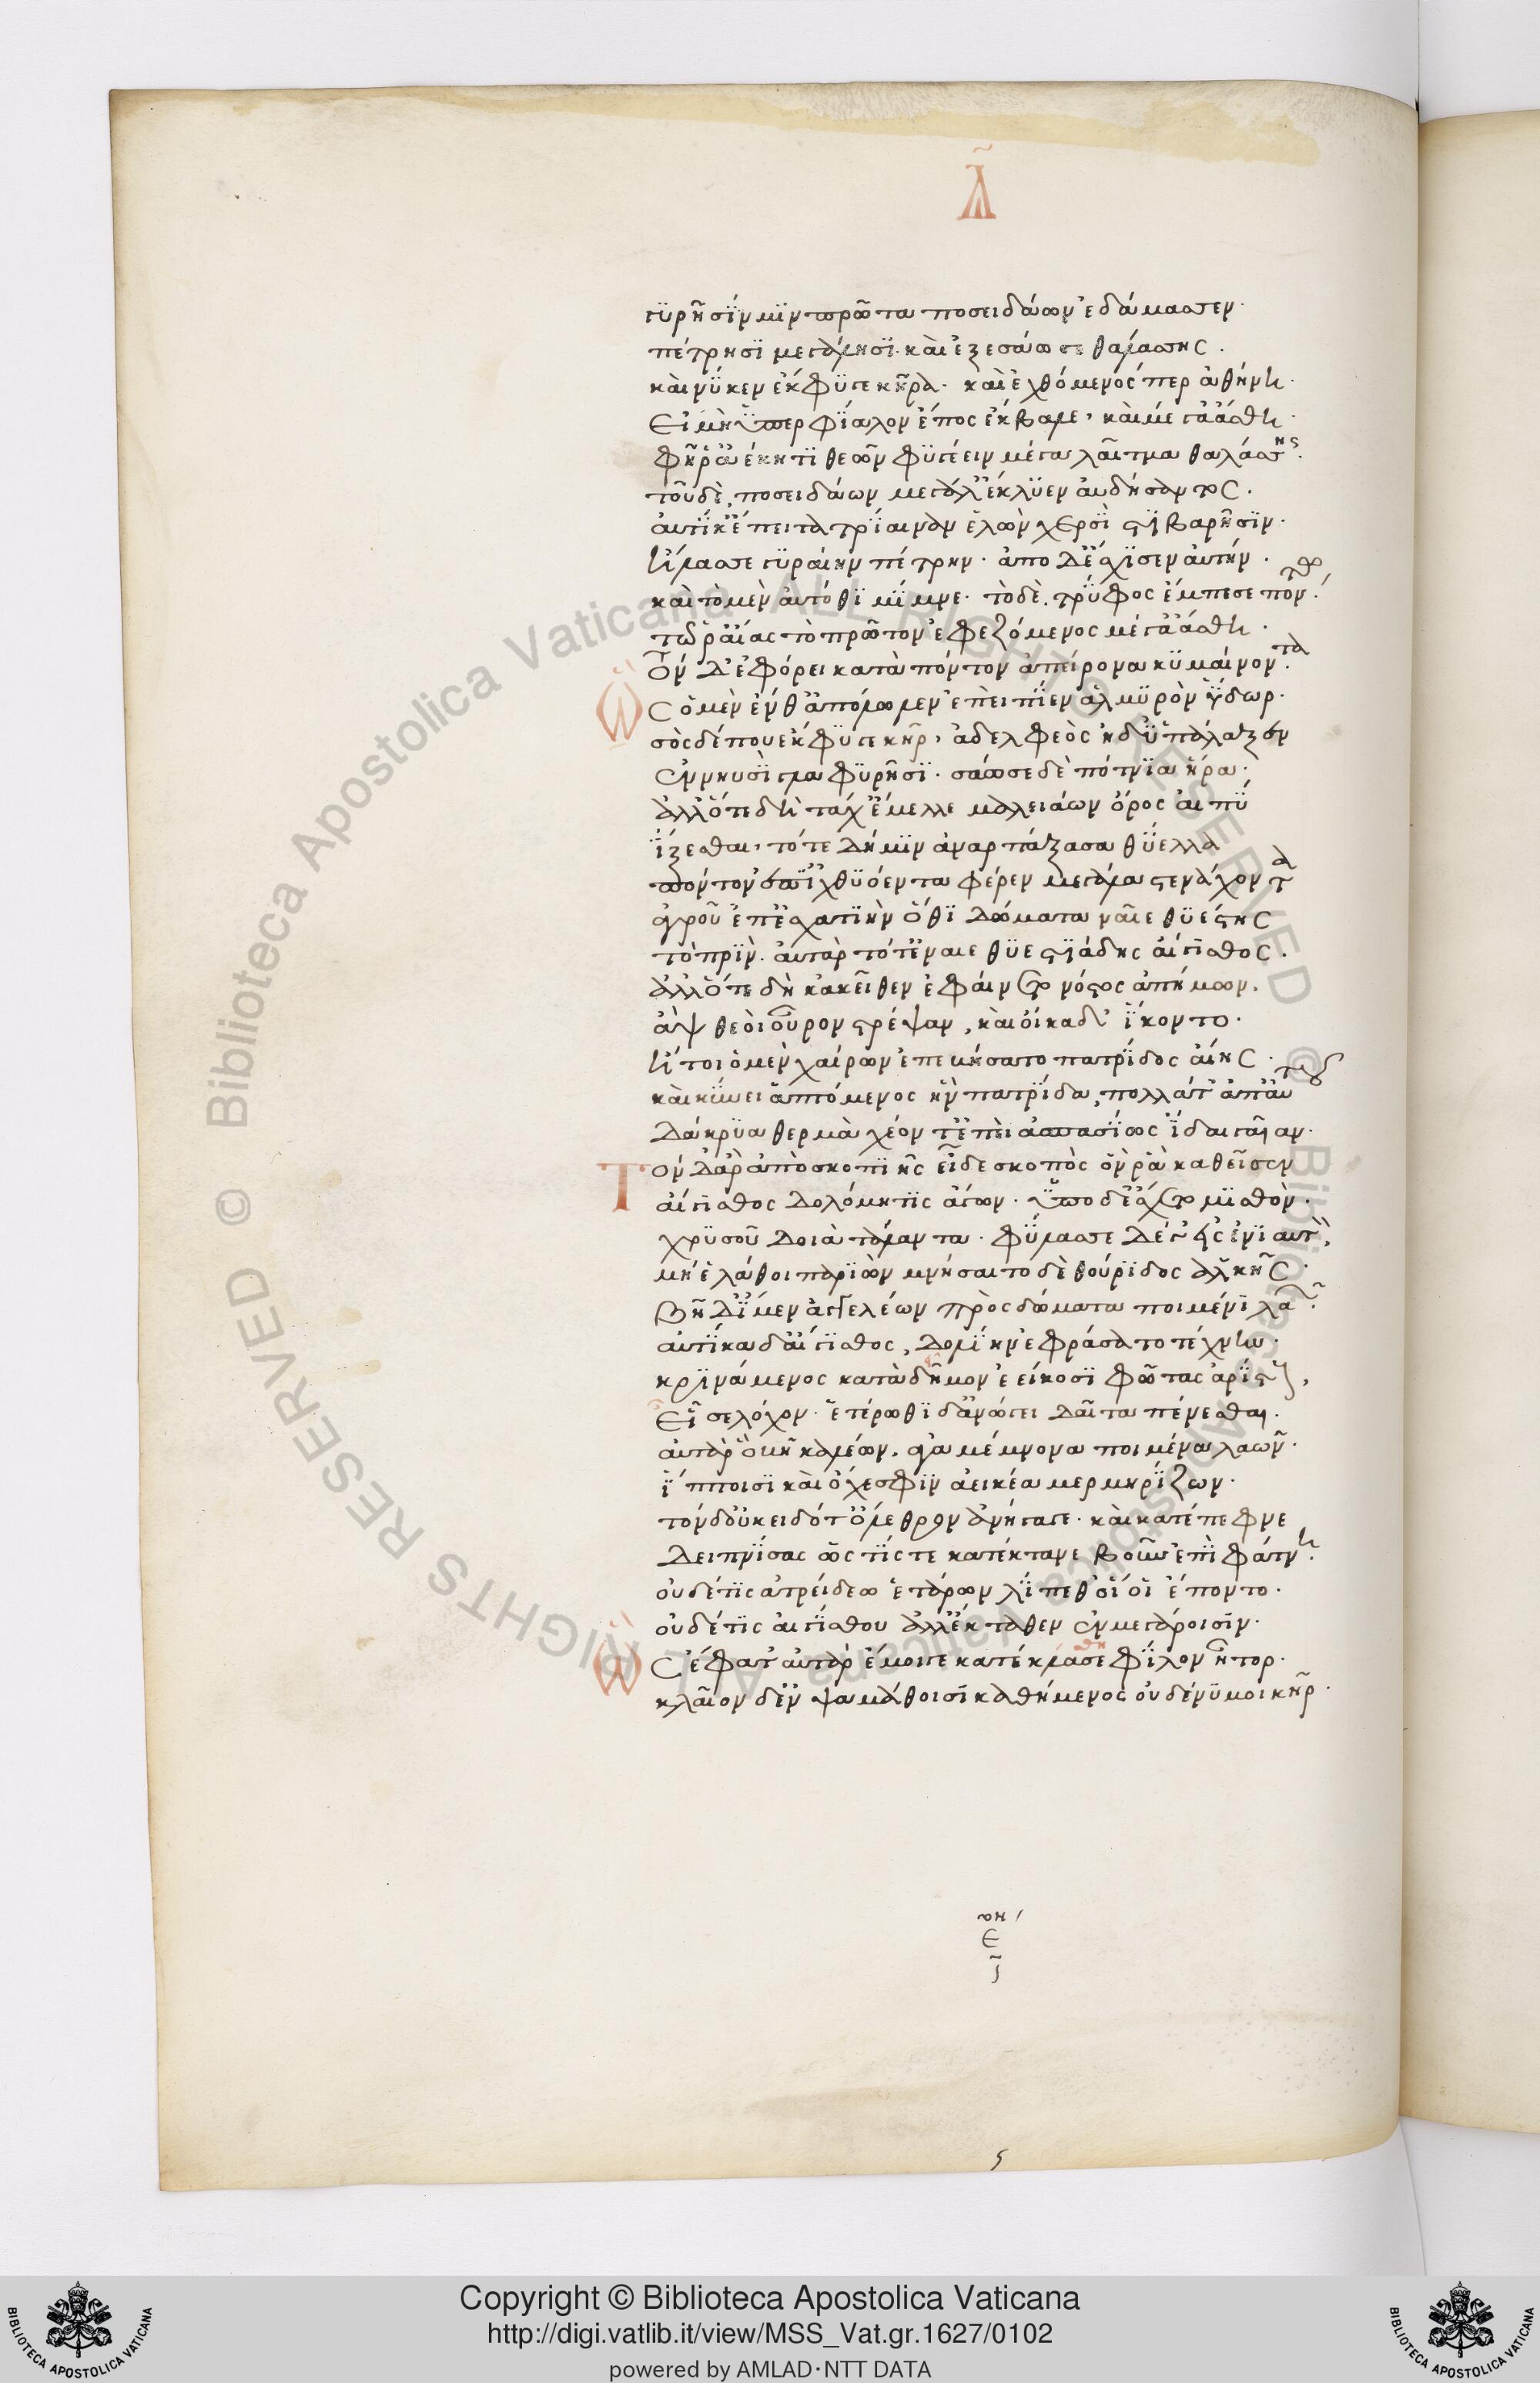 Δ̃
γϋρῆσΐν μΐν πρῶτα ποσειδάων ἐδάμασσεν·
πέτρησϊ μεγάλησϊ· καὶ ἐξεσάωσε θαλάσσης.
καὶ νύ κεν ἔκφϋγε κῆρα· καὶ ἐχθόμενός περ ἀθήνη·
Εἰ μὴ ὑπερφΐαλον ἔπος ἔκβαλε, καὶ μέγ' ἀάσθη·
φῆ ῥ' ἀέκητϊ θεῶν φϋγέειν μέγα λαῖτμα θαλάσσης.
τοῦ δὲ, ποσειδάων μεγάλ' ἔκλϋεν αὐδήσαντος.
αὐτΐκ' ἔπειτα τρΐαιναν ἑλὼν χερσὶ στϊβαρῆσϊν·
ἤλασε γϋραίην πέτρην· ἀπὸ δ' ἔσχϊσεν αὐτήν.
καὶ τὸ μὲν αὐτόθϊ μΐμνε· τὸ δὲ, τρΰφος ἔμπεσε πόντῳ·
τῶ ῥ' αἴας τὸ πρῶτον ἐφεζόμενος μέγ' ἀάσθη.
Τὸν δ' ἐφόρει κατὰ πόντον ἀπείρονα κϋμαίνοντα.
Ὣς ὁ μὲν ἔνθ' ἀπόλωλεν ἐπεὶ πΐεν ἁλμϋρὸν ὕδωρ·
σὸς δέ που ἔκφϋγε κῆρ, ἀδελφεὸς ἠδ' ὑπάλυξεν
ἐν νηυσὶ γλαφϋρῆσϊ· σάωσε δὲ πότνϊα ἥρα·
ἀλλ' ὅτε δὴ τάχ' ἔμελλε μαλειάων ὄρος αἰπΰ
ἵξεσθαι, τότε δή μϊν ἀναρπάξασα θΰελλα
πόντον ἐπ' ἰχθϋόεντα φέρεν μεγάλα στενάχοντα
ἀγροῦ ἐπ' ἐσχατϊὴν ὅθϊ δώματα ναῖε θϋέστης
τὸ πρὶν· αὐτὰρ τότ' ἔναιε θϋεστϊάδης αἴγισθος.
ἀλλ' ὅτε δὴ κἀκεῖθεν ἐφαίνετο νόστος ἀπήμων,
ἂψ θεοὶ οὖρον στρέψαν, καὶ οἴκαδ' ἵκοντο·
ἤτοι ὁ μὲν χαίρων ἐπεβήσατο πατρΐδος αἴης·
καὶ κΰνει ἁπτόμενος ἣν πατρΐδα, πολλὰ δ' ἀπ' αὐτοῦ
δάκρϋα θερμὰ χέοντ' ἐπεὶ ἀσπασΐως ἴδε γαῖαν·
Τὸν δ' ἄρ' ἀπὸ σκοπϊῆς εἶδε σκοπὸς ὅν ῥα καθεῖσεν
αἴγισθος δολόμητϊς ἄγων· ὑπὸ δ' ἔσχετο μϊσθὸν·
χρϋσοῦ δοιὰ τάλαντα· φΰλασσε δέ γ' εἰς ἐνϊαυτὸν,
μή ἑ λάθοι παρϊὼν μνήσαιτο δὲ θούρϊδος ἀλκῆς·
Βῆ δ' ἴμεν ἀγγελέων πρὸς δώματα ποιμένϊ λαῶν·
αὐτΐκα δ' αἴγϊσθος, δολΐην ἐφράσατο τέχνην·
κρϊνάμενος κατὰ δῆμον ἐείκοσϊ φῶτας ἀρΐστους,
Εἷσε λόχον· ἑτέρωθϊ δ' ἀνώγει δαῖτα πένεσθαι.
αὐτὰρ ὃ βῆ καλέων, ἀγαμέμνονα ποιμένα λαῶν·
ἵπποισϊ καὶ ὄχεσφϊν ἀεικέα μερμηρΐζων·
τὸν δ' οὐκ εἰδότ' ὄλεθρον ἀνήγαγε· καὶ κατέπεφνε
Δειπνΐσας ὥς τΐς τε κατέκτανε βοῦν ἐπὶ φάτνῃ.
οὐδέ τϊς ἀτρείδεω ἑτάρων λΐπεθ' οἵ οἱ ἕποντο·
οὐδέ τϊς αἰγΐσθου ἀλλ' ἔκταθεν ἐν μεγάροισϊν·
Ὣς ἔφατ' αὐτὰρ ἔμοιγε κατεκλάσθη φΐλον ἦτορ·
κλαῖον δ' ἐν ψαμάθοισϊ καθήμενος οὐδέ νΰ μοι κῆρ·
Copyright © Biblioteca Apostolica Vaticana
http://digi.vatlib.it/view/MSS_Vat.gr.1627/0102
powered by AMLAD·NTT DATA
BIBLIOTECA APOSTOLICA VATICANA
BIBLIOTECA APOSTOLICA VATICANA
© Biblioteca Apostolica Vaticana ALL RIGHTS RESERVED © Biblioteca Apostolica Vaticana ALL RIGHTS RESERVED